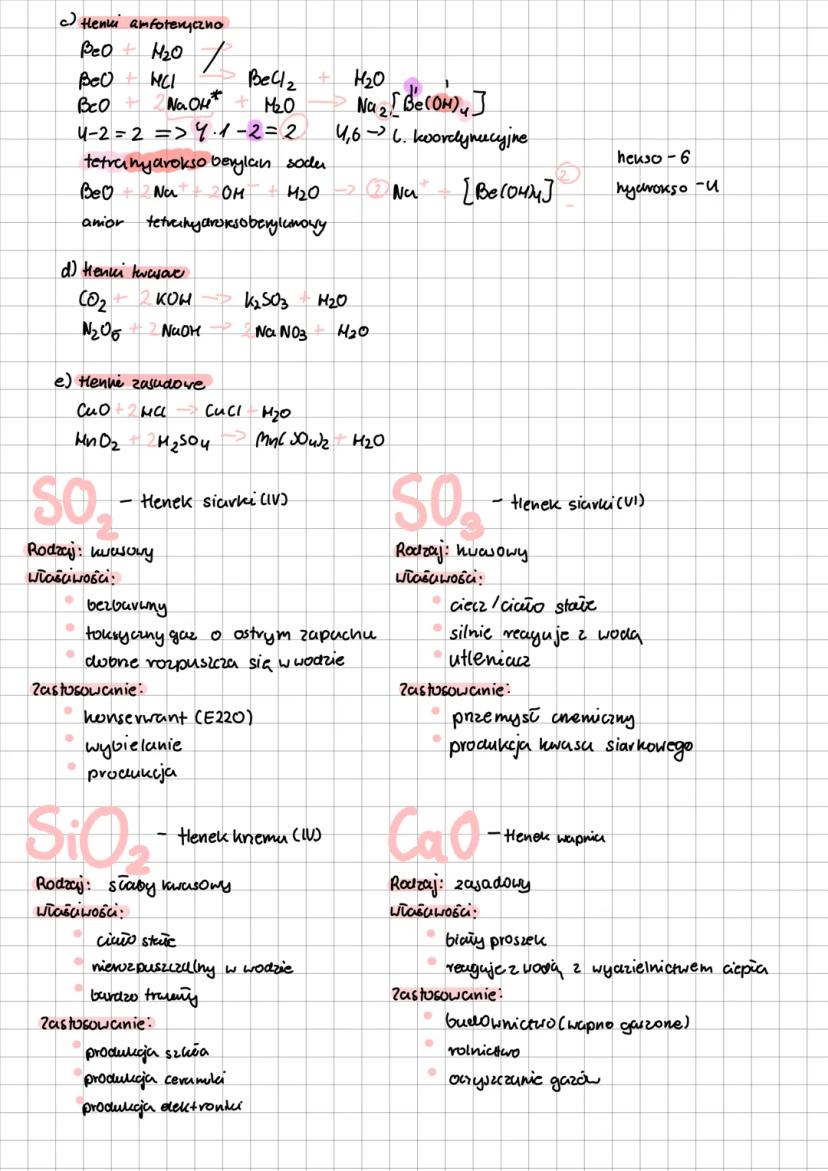 c) tlenki amfoteryczne
BeO + H2O ↛
BeO + HCl → BeCl2 + H2O
BeO + 2NaOH* + H2O → Na2[Be(OH)4]
II I
4-2=2 => 4·1-2=2 4,6 → l. koordynacyjne
tetrahydrokso berylan sodu
hekso - 6
BeO + 2Na+ + 2OH- + H2O → 2Na+ + [Be(OH)4]2-
hydrokso - 4
anion tetrahydroksoberylanowy
d) tlenki kwasowe
CO2 + 2KOH → K2SO3 + H2O
N2O5 + 2NaOH → 2NaNO3 + H2O
e) tlenki zasadowe
CuO + 2HCl → CuCl + H2O
MnO2 + 2H2SO4 → Mn(SO4)2 + H2O
SO2 - tlenek siarki (IV)
Rodzaj: kwasowy
Właściwości:
bezbarwny
toksyczny gaz o ostrym zapachu
dobrze rozpuszcza się w wodzie
Zastosowanie:
konserwant (E220)
wybielanie
produkcja
SO3 - tlenek siarki (VI)
Rodzaj: kwasowy
Właściwości:
ciecz / ciało stałe
silnie reaguje z wodą
utleniacz
Zastosowanie:
przemysł chemiczny
produkcja kwasu siarkowego
SiO2 - tlenek krzemu (IV)
Rodzaj: słaby kwasowy
Właściwości:
ciało stałe
nierozpuszczalny w wodzie
bardzo trwały
Zastosowanie:
produkcja szkła
produkcja ceramiki
produkcja elektroniki
CaO - tlenek wapnia
Rodzaj: zasadowy
Właściwości:
biały proszek
reaguje z wodą z wydzielnictwem ciepła
Zastosowanie:
budownictwo (wapno gaszone)
rolnictwo
oczyszczanie gazów